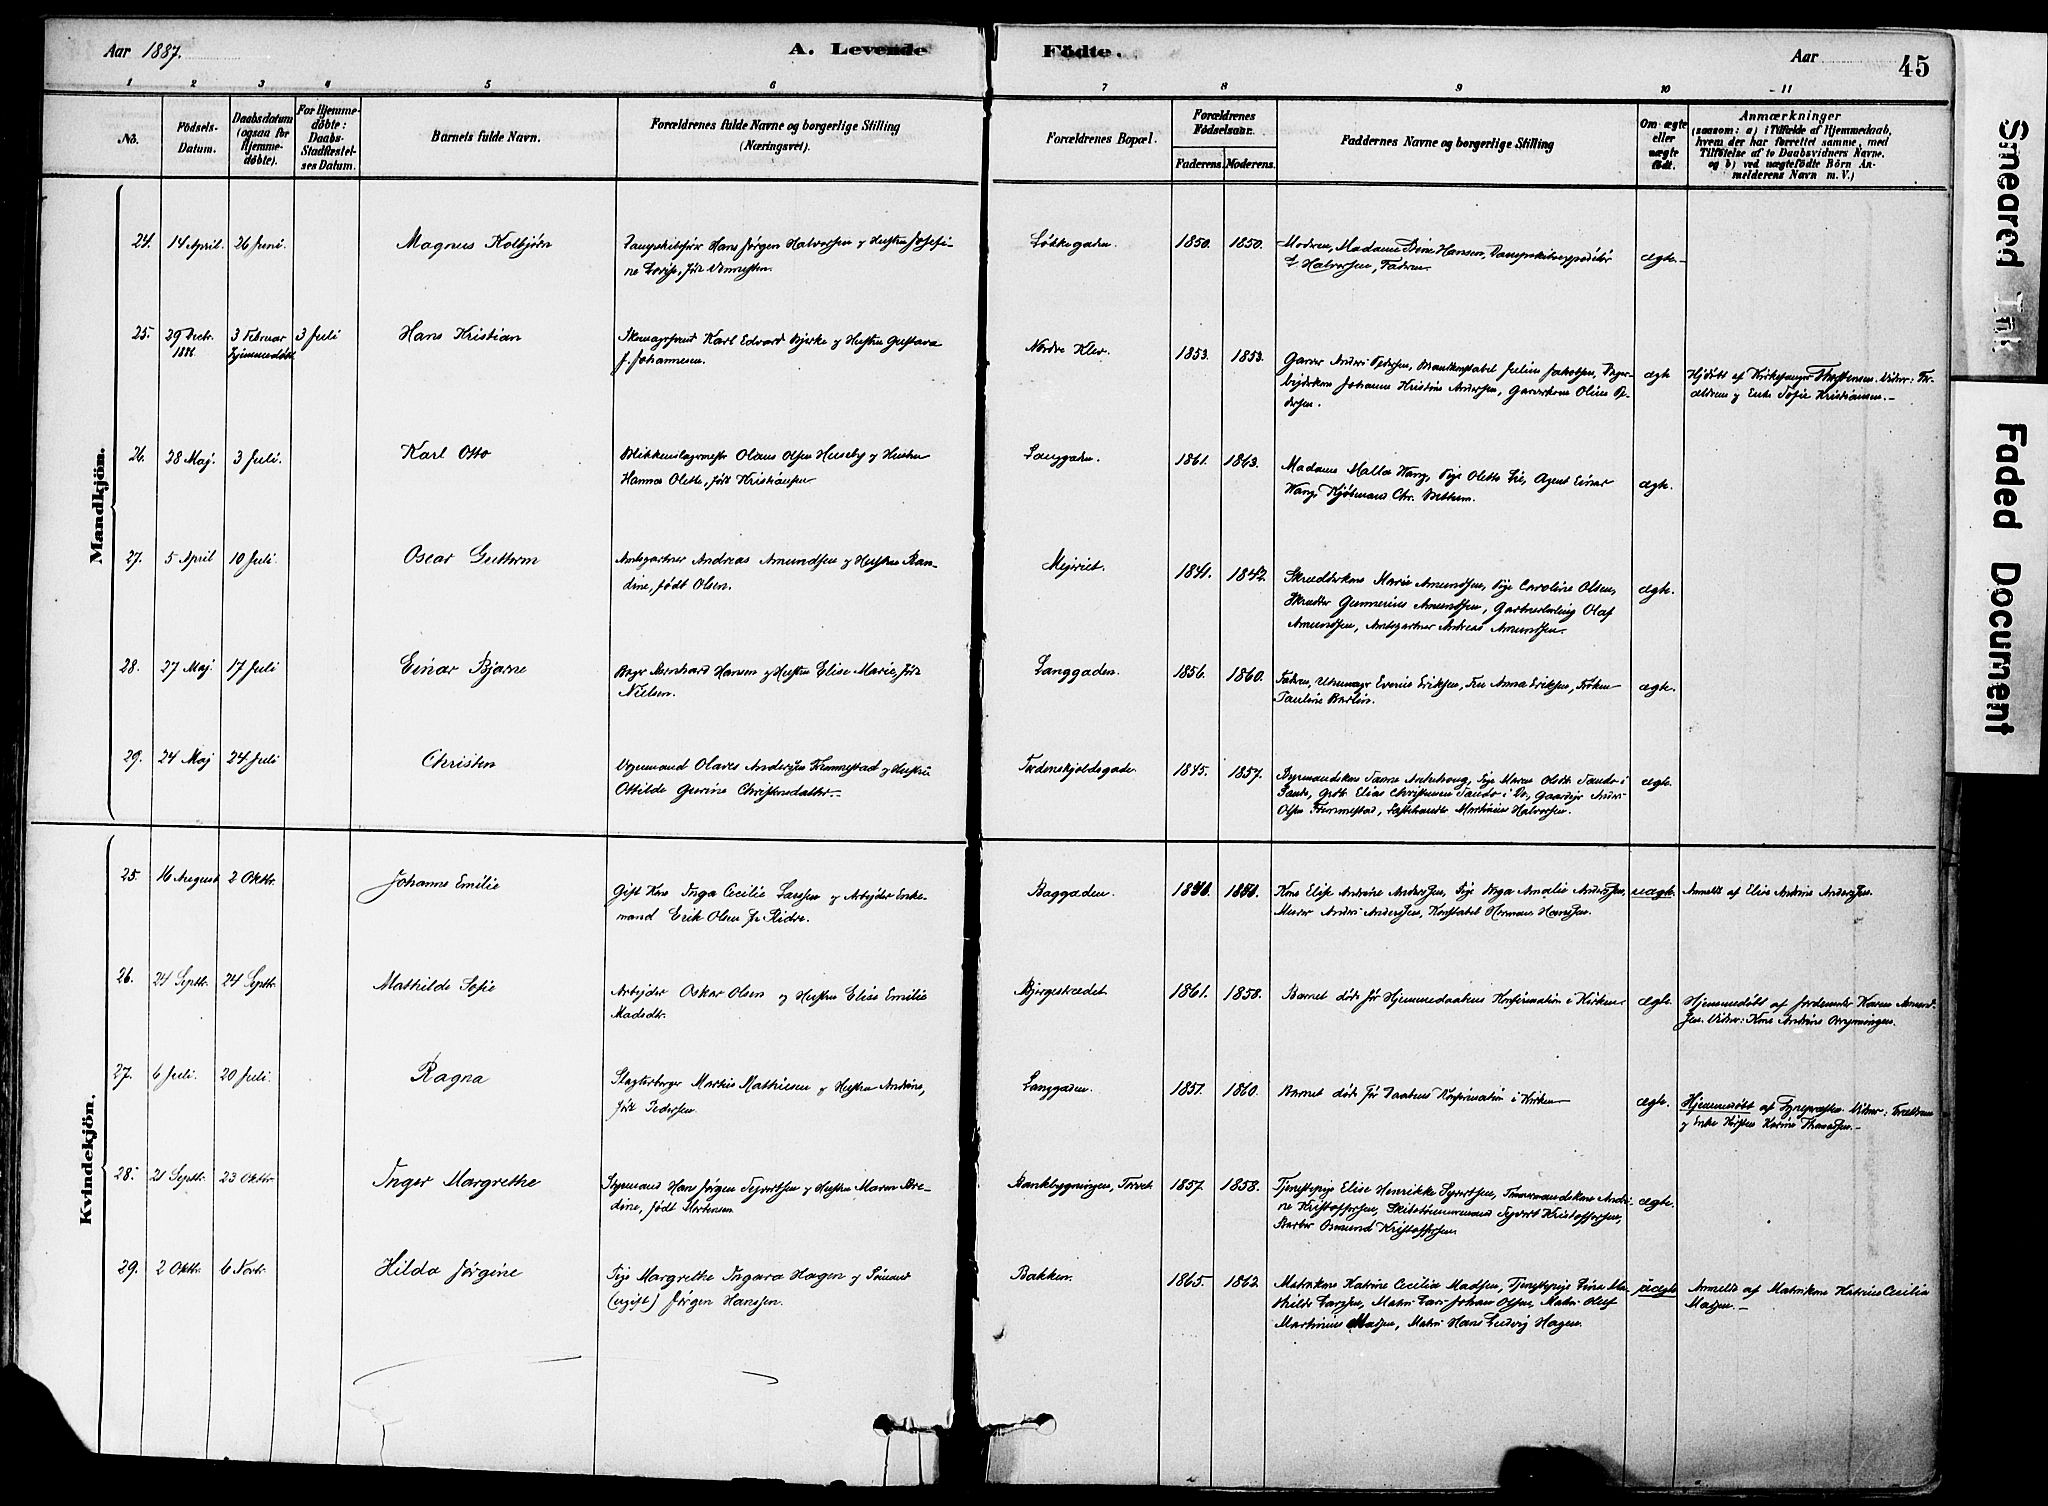 Aar 1887.
A. Levende
Födte.
Aar
45
1 2 3 4 5 6 7 8 9 10 11
No.
Födsels-Datum.
Daabsdatum (ogsaa for Hjemmedøbte).
For Hjemmedøbte: Daabs-Stadfæstelses Datum.
Barnets fulde Navn.
Forældrenes fulde Navne og borgerlige Stilling (Næringsvei).
Forældrenes Bopæl.
Forældrenes Födselsaar.
Faderens. Moderens.
Faddernes Navne og borgerlige Stilling
Om ægte eller uægte født.
Anmærkninger
(saasom: a) i Tilfælde af Hjemmedaab,
hvem der har forrettet samme, med
Tilføielse af to Daabsvidners Navne,
og b) ved uægtefödte Börn An-
melderens Navn m. V.)
Mandkjön.
24. 14 April. 26 Juni. Magnus Kolbjørn
Hans Jørgen Halvorsen og Hustru Josefi-
ne Lovise, født
Løkkegaden. 1850. 1850.
Modren, Madame Hansen,
Halvorsen, Faderen.
ægte.
25. 29 Decbr. 1886. 3 Februar hjemmedøbt 3 Juli Hans Kristian
Karl Edvard Bjerke og Hustru Gustava
F. Johannesen.
Nordre Klev. 1853. 1853.
Garver Anders Pedersen, Brandkonstabel Julius Jakobsen,
Johanne Kristine Andersen, Garverkone Oline Pe-
dersen.
ægte
Hjdøbt af Kirkesanger Thorstensen. Vidner: For-
ældrene og Enke Sofie Kristiansen.
26. 28 Maj. 3 Juli. Karl Otto
Blikkenslagermester Olaus Olsen Huseby og Hustru
Hanna Olette, født Kristiansen
Langgaden. 1861. 1863.
Madame Malla Wang, Pige Olette Lie, Agent Einar
Wang, Kjøbmand Chr.
ægte.
27. 5 April 10 Juli. Oscar Guttorm
Amtsgartner Andreas Amundsen og Hustru Ran-
dine, født Olsen.
Mejeriet. 1841. 1842.
Skræderkone Marie Amundsen, Pige Caroline Olsen,
Skrædder Gunnerius Amundsen, Gartnerlærling Olaf
Amundsen, Amtsgartner Andreas Amundsen.
ægte.
28. 27 Maj. 17 Juli Einar Bjarne
Bager Bernhard Hansen og Hustru Elise Marie født
Nielsen.
Langgaden. 1856. 1860.
Faderen, Uhrmager Eriksen, Fru Anna Eriksen, Frøken
Pauline
ægte.
29. 24 Maj 24 Juli Christen
Olaves Andersen Fremmestad og Hustru
Ottilde Gurine Christensdatter
Tordenskjoldsgade. 1845. 1857.
Pige Maren Olette Sande i
Sande, Elias Christensen Sande i Do, Gaardejer Anders
Olsen Fremmestad, Halvorsen.
ægte.
Kvindekjön.
25. 16 August 2 Oktbr. Johanne Emilie
Gift Kone Inga Cecilie Larssen og Arbejder Enke-
mand Erik Olsen
Baggaden. 1840. 1850.
Kone Elise Andrine Anderssen, Pige Inga Amalie Anderssen,
Murer Anders Anderssen, Konstabel Herman Hanssen.
uægte.
Anmeldt af Elise Andrine Anderssen.
26. 24 Septbr. 24 Septbr. Mathilde Sofie
Arbejder Oskar Olsen og Hustru Elise Emilie
Madsdtr.
Bjergestrædet. 1861. 1850.
Barnet døde før Hjemmedaabens Konfirmation i Kirken
ægte.
Hjemmedøbt af Jordemoder Karen Amund-
sen. Vidner: Kone Andrine
27. 6 Juli. 20 Juli. Ragna
Slagterborger Martin Mathiesen og Hustru Andrine,
født Pedersen.
Langgaden. 1857. 1860.
Barnet døde før Daabens Konfirmation i Kirken
ægte.
Hjemmedøbt af Sognepresten. Vidner: Forældrene
og Enke Kirsten Karine Thomassen.
28. 21 Septbr. 23 Oktbr Inger Margrethe
Styrmand Hans Jørgen Syvertsen og Hustru Maren Bre-
dine, født Mortensen
Bankbygningen, Torvet 1857. 1858.
Tjenestepige Elise Henrikke Syvertsen, Tømmermandskone Andri-
ne Kristoffersen, Skibstømmermand Syvert Kristoffersen,
Osmund Kristoffersen.
ægte.
29. 2 Oktbr. 6 Novbr. Hilda Jørgine
Pige Margrethe Ingara Hagen og Sømand
(ugift) Jørgen Hanssen.
Bakken. 1865. 1862.
Matroskone Katrine Cecilia Madsen, Tjenestepige Lina Ma-
thilde Larssen, Matros Lars Johan Olsen, Matros Oluf
Martinius Madsen, Matros Hans Ludvig Hagen.
uægte
Anmeldt af Matroskone Katrine Cecilia
Madsen.
Smeared Ink
Faded Document